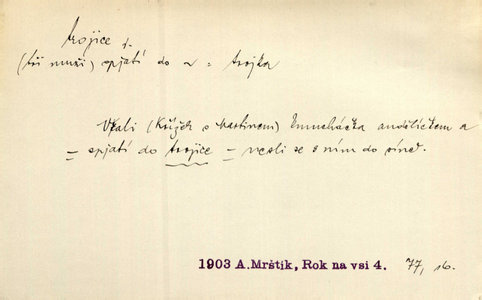 trojice f.
(tři muži) spjatí do ~ = trojka
Vzali (Křižek s Martinem) Emucháčka andělíčkem a
= spjatí do trojice = nesli se s ním do síně.
1903 A.Mrštík, Rok na vsi 4. 77, 16.